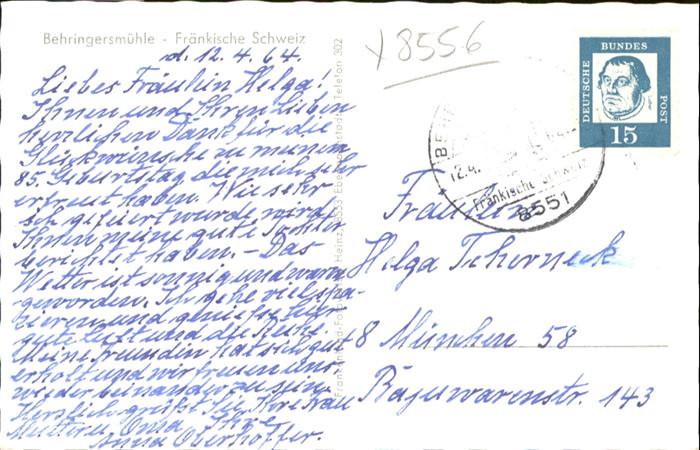 Behringersmühle - Fränkische Schweiz
d. 12.4.64.
Liebes Fräulein Helga!
Ihnen und Ihren Lieben
herzlichen Dank für die
Glückwünsche zu meinem
85. Geburtstag die mich sehr
erfreut haben. Wie sehr
ich gefeiert wurde wird
Ihnen meine gute Tochter
berichtet haben. - Das
Wetter ist sonnig und warm
geworden. Ich gehe viel spa-
zieren und genieße hier
gute Luft und die Ruhe.
Meine Freundin hat sich gut
erholt und wir freuen uns
wieder beinander zu sein.
Herzlich grüßt Sie, Ihre Frau
Mutter u. Oma Ihre
Anna Oberhoffer.
Heinz, 8553 Eb Telefon 302
x 8556
DEUTSCHE BUNDES POST
15
12.4.
Fränkische Schweiz
8551
Fräulein
Helga Tscherneck
8 München 58
Bajuwarenstr. 143